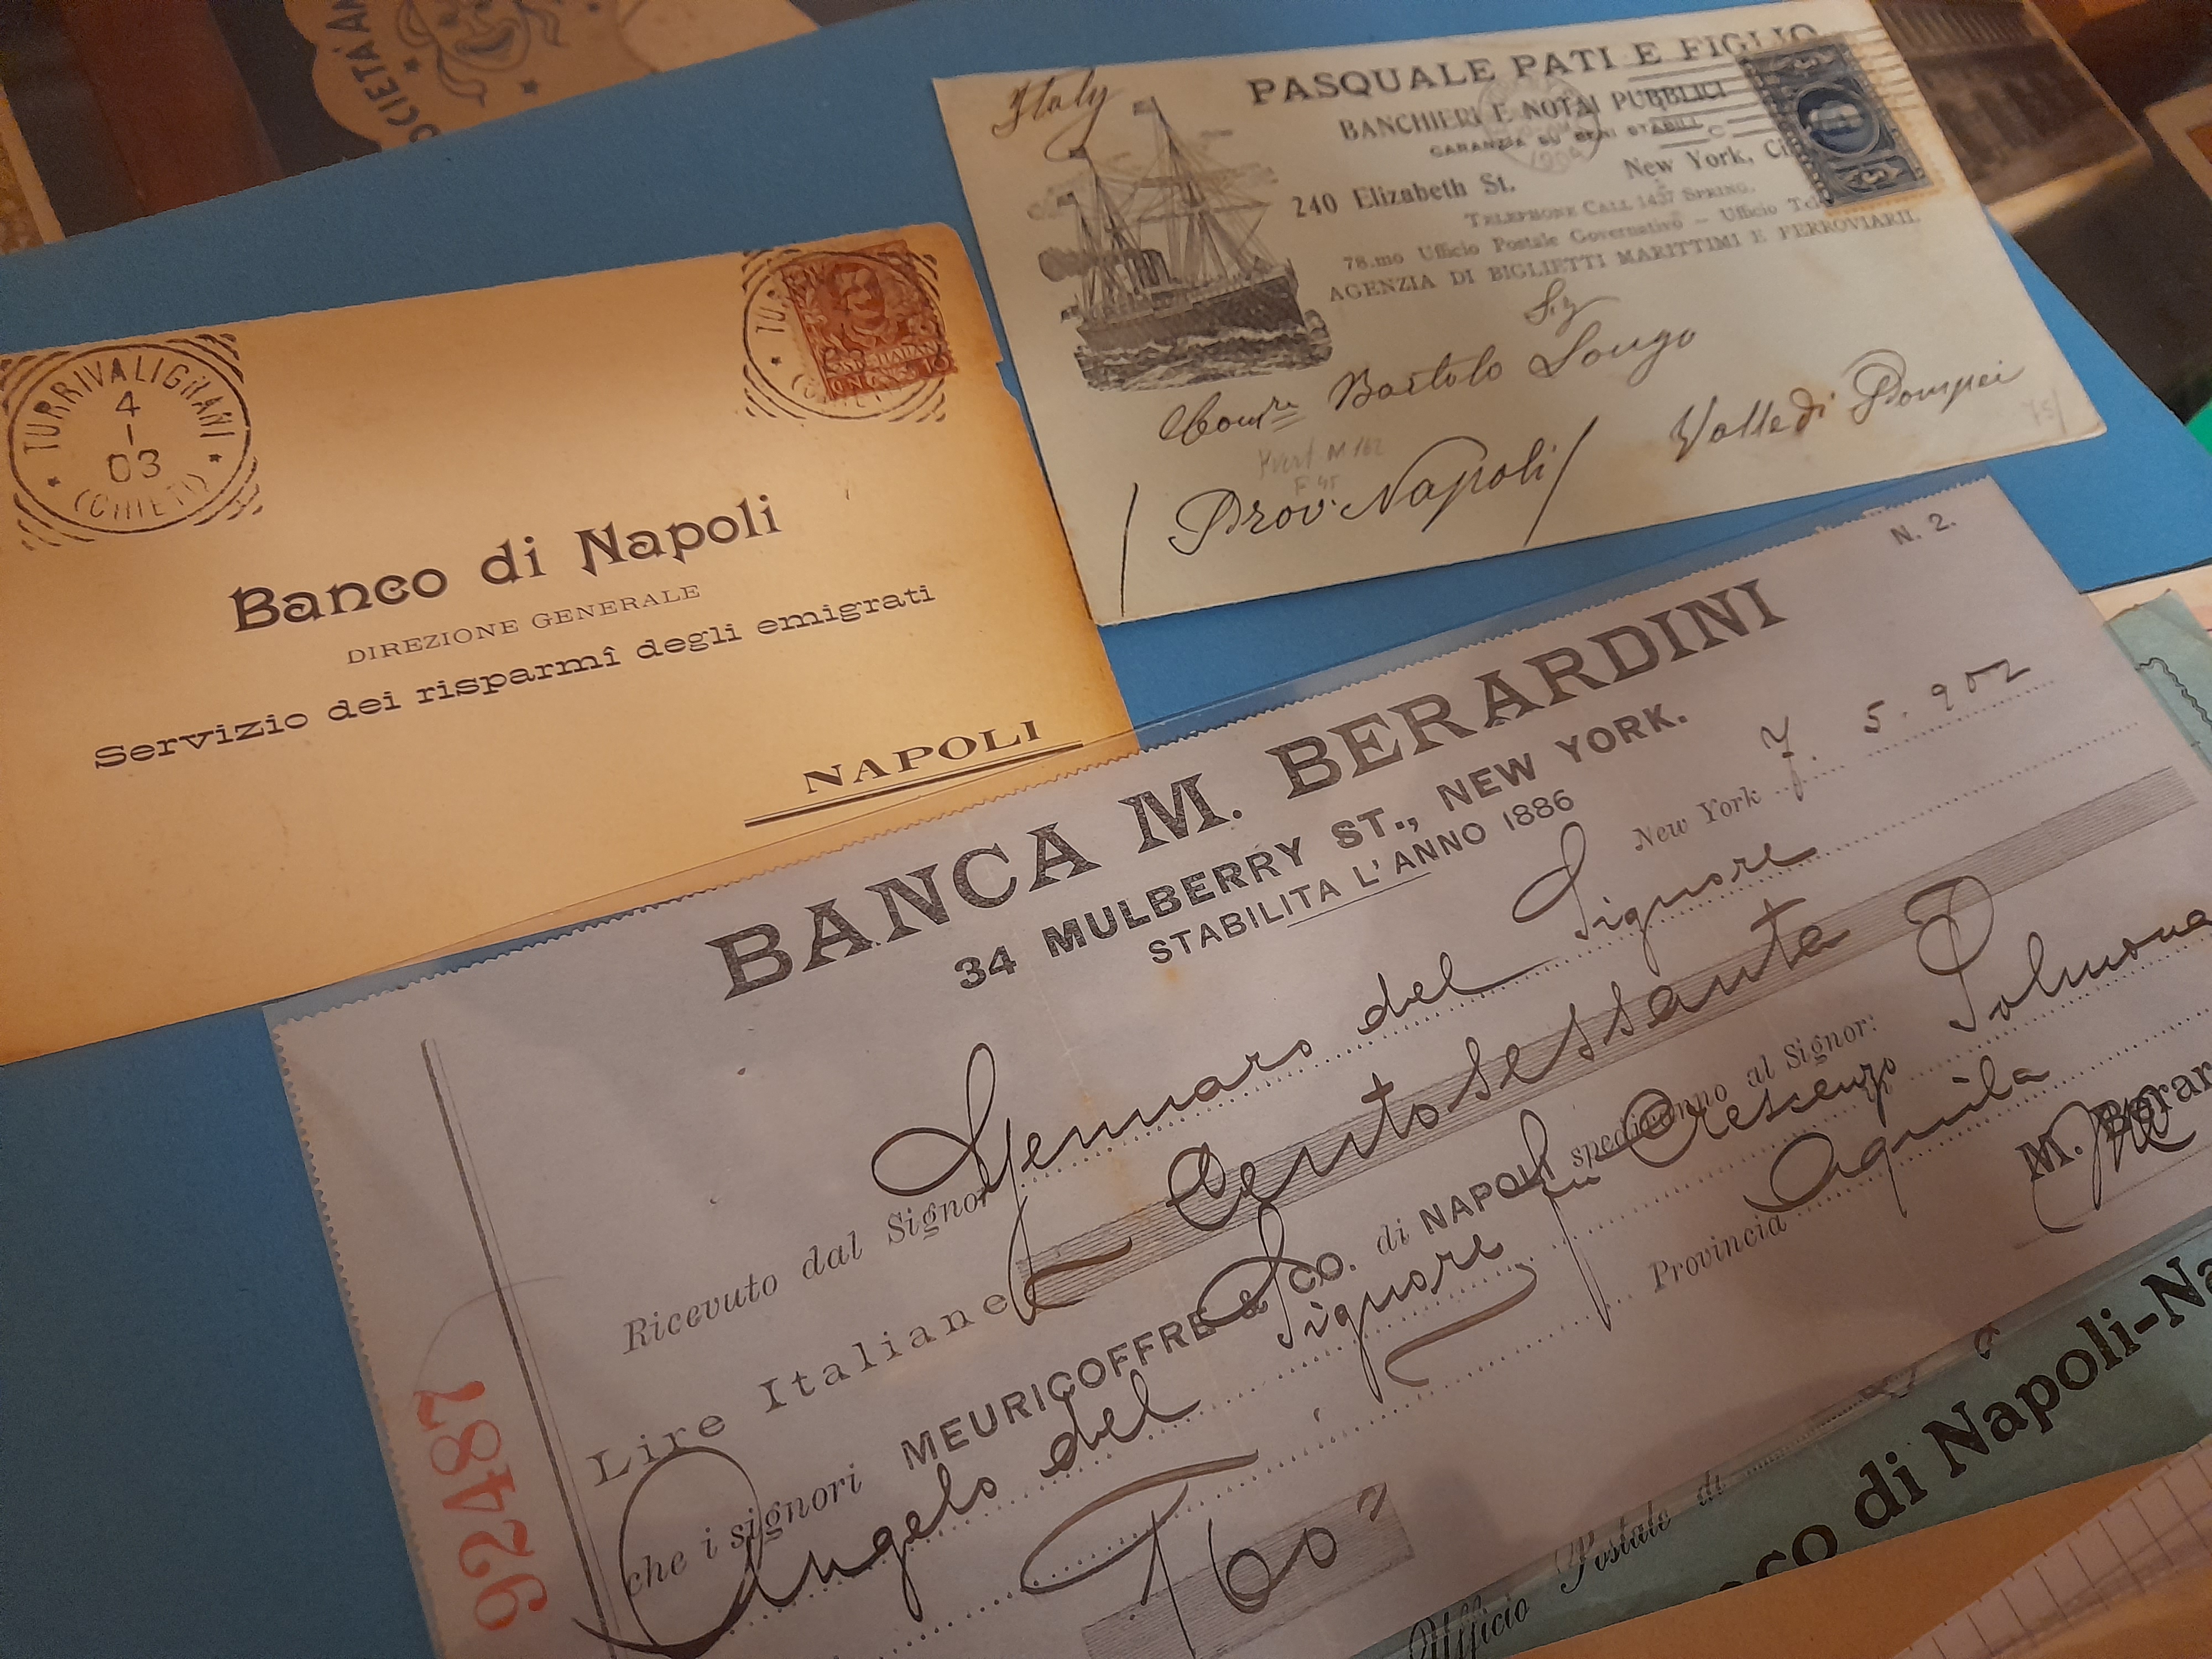 SOCIETÀ
TURRIVALIGNANI
4
1
03
(CHIETI)
Banco di Napoli
DIREZIONE GENERALE
Servizio dei risparmî degli emigrati
NAPOLI
Italy
PASQUALE PATI E FIGLIO
BANCHIERI E NOTAI PUBBLICI
GARANZIA SU BENI STABILI
240 Elizabeth St. New York,
TELEPHONE CALL 1437 SPRING.
78.mo Ufficio Postale Governativo – Ufficio
AGENZIA DI BIGLIETTI MARITTIMI E FERROVIARII.
Comre Bartolo Longo
Valle di Pompei
Prov. Napoli
N. 2.
BANCA M. BERARDINI
34 MULBERRY ST., NEW YORK.
STABILITA L'ANNO 1886
New York 7. 5. 902
Ricevuto dal Signor Gennaro del Signore
Lire Italiane Centosessanta
che i signori MEURICOFFRE & CO. di NAPOLI spediranno al Signor:
Angelo del Signore fu Crescenzo Solmona
Provincia Aquila
160
M.
92487
Ufficio Postale di
di Napoli